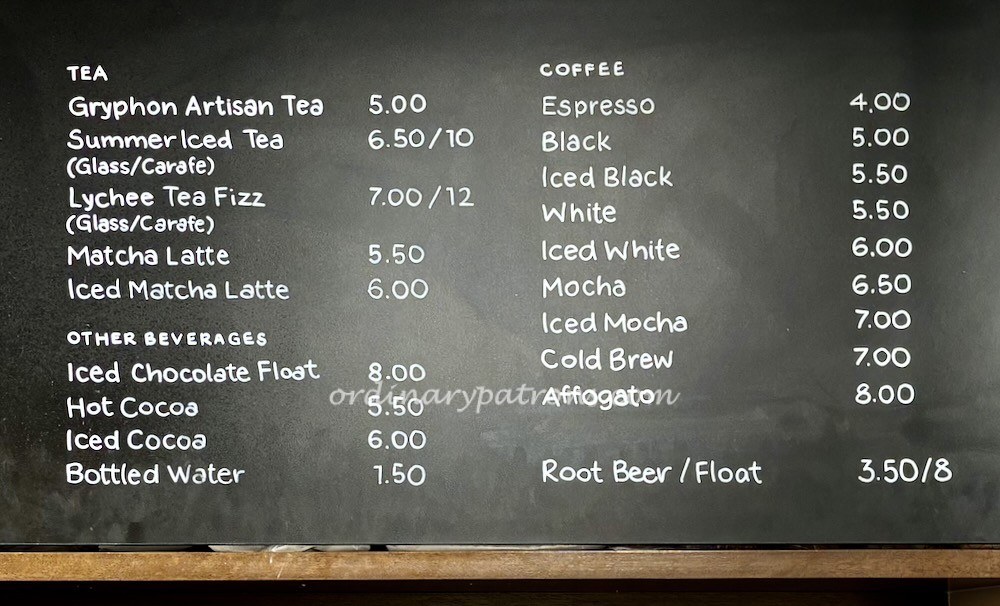 TEA
Gryphon Artisan Tea 5.00
Summer Iced Tea 6.50/10
(Glass/Carafe)
Lychee Tea Fizz 7.00/12
(Glass/Carafe)
Matcha Latte 5.50
Iced Matcha Latte 6.00
OTHER BEVERAGES
Iced Chocolate Float 8.00
Hot Cocoa 5.50
Iced Cocoa 6.00
Bottled Water 1.50
COFFEE
Espresso 4.00
Black 5.00
Iced Black 5.50
White 5.50
Iced White 6.00
Mocha 6.50
Iced Mocha 7.00
Cold Brew 7.00
Affogato 8.00
Root Beer / Float 3.50/8
ordinarypatrons.com